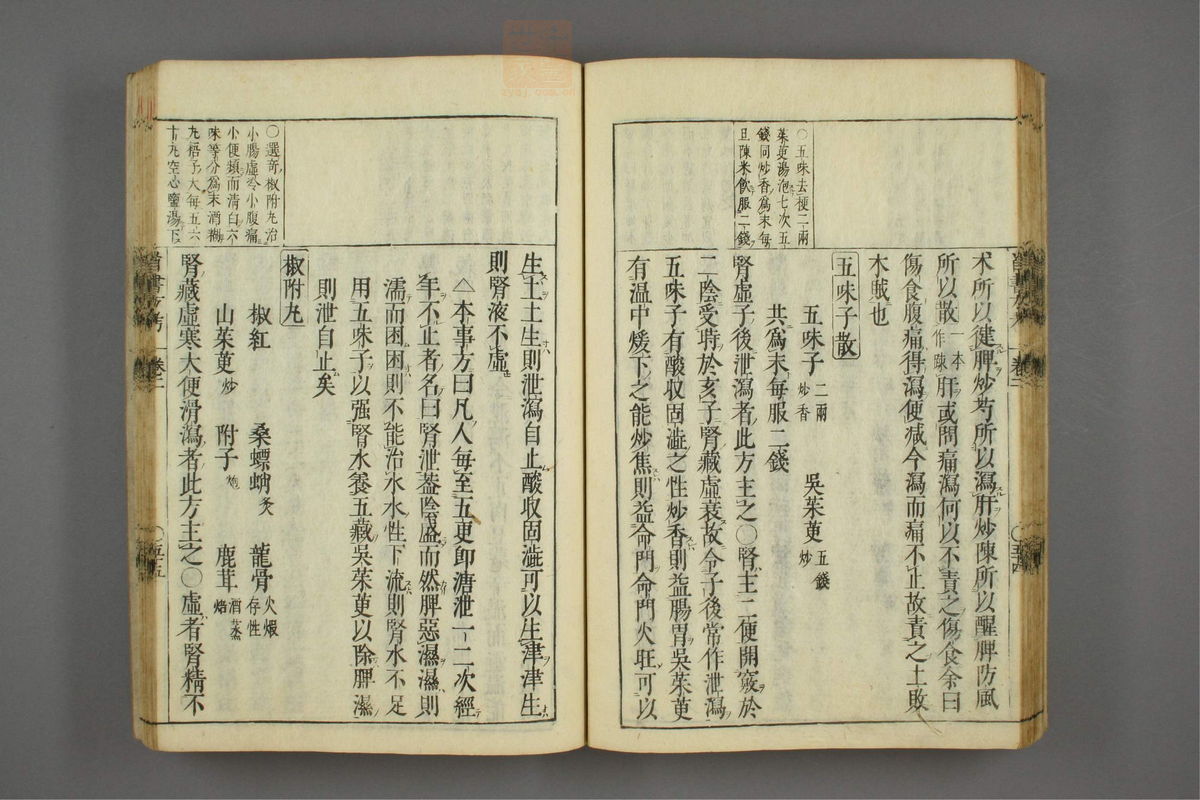 ○五味去梗二兩
茱萸湯泡七次五
錢同炒香爲末每
旦陳米飲服二錢
术所以健脾炒芍所以瀉肝炒陳所以醒脾防風
所以散一本作陳肝或問痛瀉何以不責之傷食余曰
傷食腹痛得瀉便減今瀉而痛不止故責之土敗
木賊也
五味子散
五味子二兩炒香 吳茱萸五錢炒
共爲末每服二錢
腎虛子後泄瀉者此方主之○腎主二便開竅於
二陰受時於亥子腎藏虛衰故令子後常作泄瀉
五味子有酸収固澁之性炒香則益腸胃吳茱萸
有温中煖下之能炒焦則益命門命門火旺可以
○選奇椒附丸治
小腸虛冷小腹痛
小便頻而清白六
味等分爲末酒糊
丸梧子大每五六
十丸空心鹽湯下
生土土生則泄瀉自止酸収固澁可以生津津生
則腎液不虛
△本事方曰凡人每至五更卽溏泄一二次經
年不止者名曰腎泄蓋陰盛而然脾惡濕濕則
濡而困困則不能治水水性下流則腎水不足
用五味子以强腎水養五藏吳茱萸以除脾濕
則泄自止矣
椒附丸
椒紅 桑螵蛸炙 龍骨火煅存性
山茱萸炒 附子炮 鹿茸酒蒸焙
腎藏虛寒大便滑瀉者此方主之○虛者腎精不
卷二
○五十四
卷二
○五十五